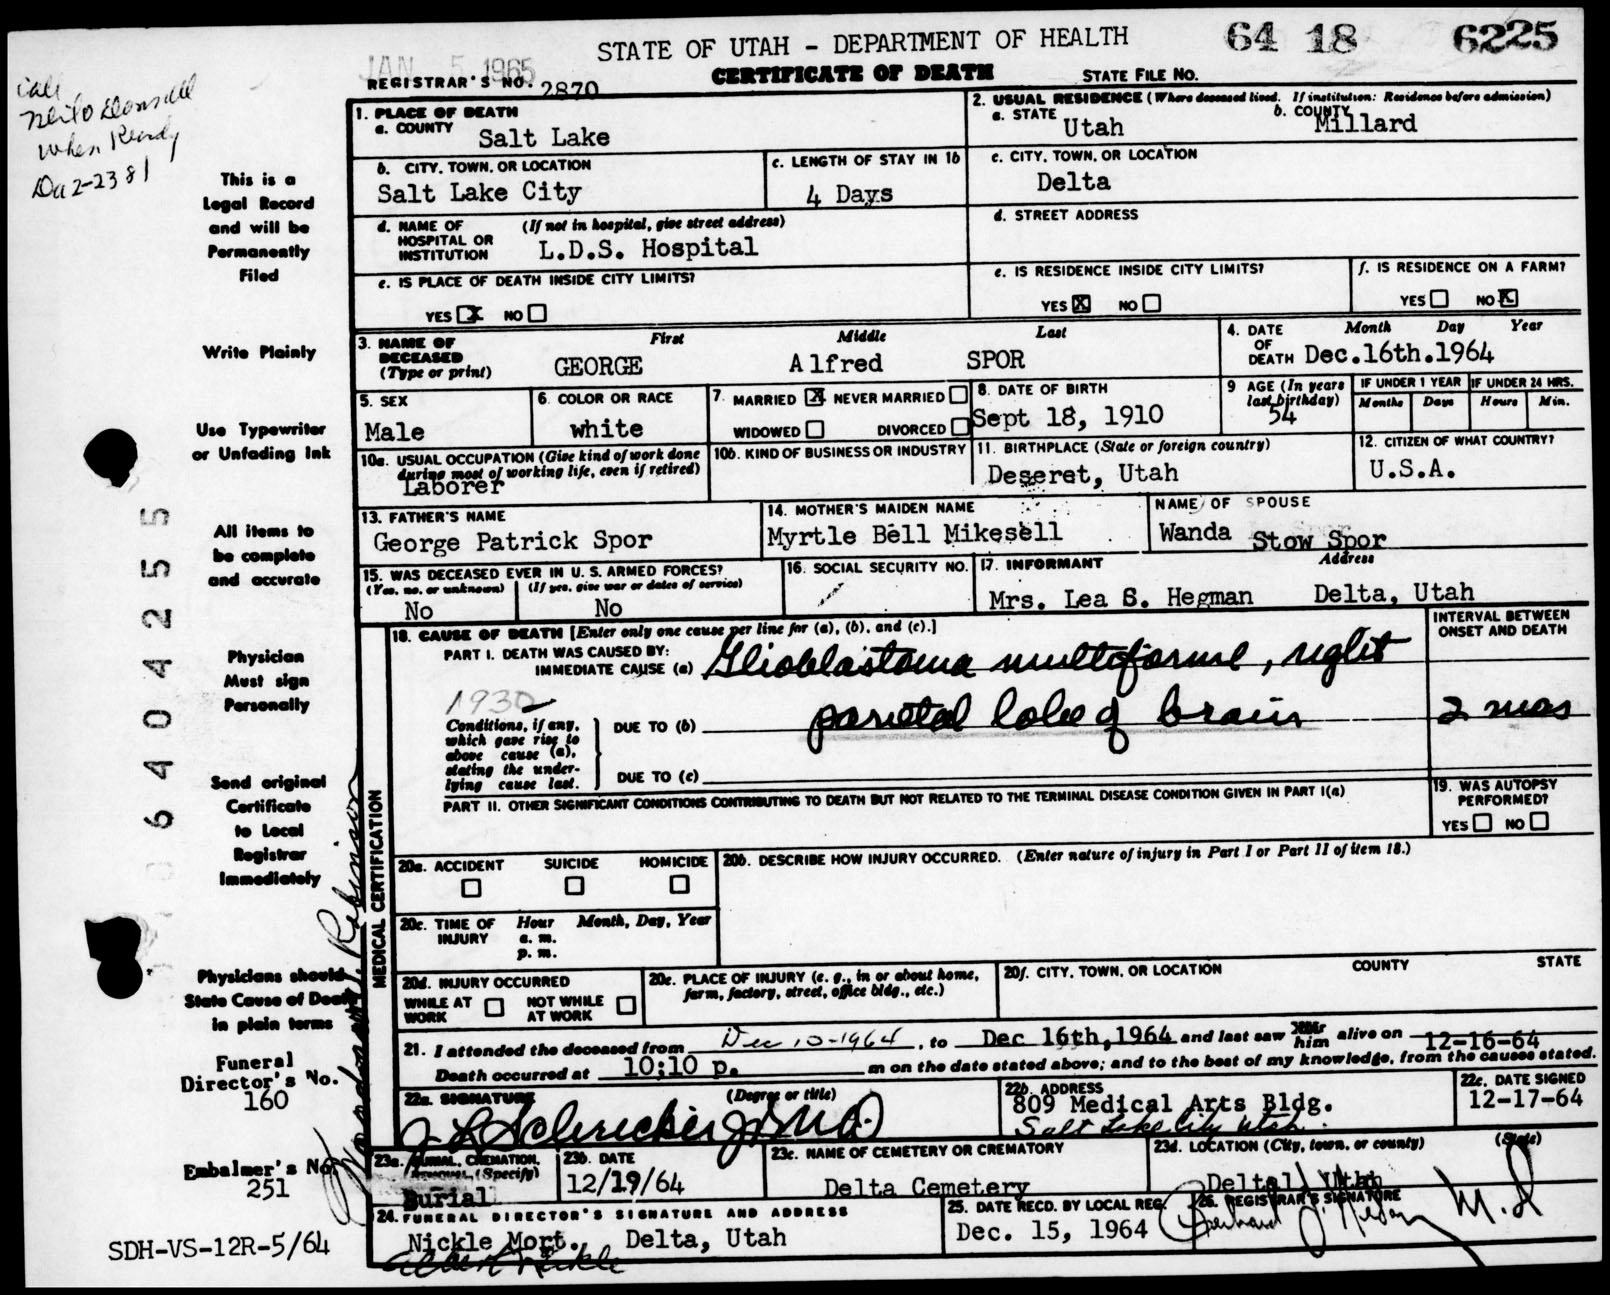 STATE OF UTAH - DEPARTMENT OF HEALTH
64 18 6225
JAN 5 1965
REGISTRAR'S NO. 2870
CERTIFICATE OF DEATH
STATE FILE NO.
call
when Ready
2-23 81
This is a
Legal Record
and will be
Permanently
Filed
Write Plainly
Use Typewriter
or Unfading Ink
All items to
be complete
and accurate
Physician
Must sign
Personally
Send original
Certificate
to Local
Registrar
Immediately
Physicians should
State Cause of Death
in plain terms
Funeral
Director's No.
160
Embalmer's No
251
SDH-VS-12R-5/64
0 6 4 0 4 2 5 5
Robinson
1. PLACE OF DEATH
a. COUNTY Salt Lake
2. USUAL RESIDENCE (Where deceased lived. If institution: Residence before admission)
a. STATE Utah b. COUNTY Millard
b. CITY, TOWN, OR LOCATION
Salt Lake City
c. LENGTH OF STAY IN 1b
4 Days
c. CITY, TOWN, OR LOCATION
Delta
d. NAME OF HOSPITAL OR INSTITUTION (If not in hospital, give street address)
L.D.S. Hospital
d. STREET ADDRESS
e. IS PLACE OF DEATH INSIDE CITY LIMITS?
YES X NO
e. IS RESIDENCE INSIDE CITY LIMITS?
YES X NO
f. IS RESIDENCE ON A FARM?
YES NO X
3. NAME OF DECEASED (Type or print)
First Middle Last
GEORGE Alfred SPOR
4. DATE OF DEATH Month Day Year
Dec.16th.1964
5. SEX
Male
6. COLOR OR RACE
white
7. MARRIED X NEVER MARRIED
WIDOWED DIVORCED
8. DATE OF BIRTH
Sept 18, 1910
9 AGE (In years last birthday)
54
IF UNDER 1 YEAR IF UNDER 24 HRS.
Months Days Hours Min.
10a. USUAL OCCUPATION (Give kind of work done during most of working life, even if retired)
Laborer
10b. KIND OF BUSINESS OR INDUSTRY
11. BIRTHPLACE (State or foreign country)
Deseret, Utah
12. CITIZEN OF WHAT COUNTRY?
U.S.A.
13. FATHER'S NAME
George Patrick Spor
14. MOTHER'S MAIDEN NAME
Myrtle Bell Mikesell
NAME OF SPOUSE
Wanda Stow Spor
15. WAS DECEASED EVER IN U. S. ARMED FORCES?
(Yes, no, or unknown) (If yes, give war or dates of service)
No No
16. SOCIAL SECURITY NO.
17. INFORMANT Address
Mrs. Lea S. Hegman Delta, Utah
MEDICAL CERTIFICATION
18. CAUSE OF DEATH [Enter only one cause per line for (a), (b), and (c).]
INTERVAL BETWEEN ONSET AND DEATH
PART I. DEATH WAS CAUSED BY:
IMMEDIATE CAUSE (a) Glioblastoma multiforme, right
1930
Conditions, if any, which gave rise to above cause (a), stating the underlying cause last.
DUE TO (b) parietal lobe of brain 2 mos
DUE TO (c)
PART II. OTHER SIGNIFICANT CONDITIONS CONTRIBUTING TO DEATH BUT NOT RELATED TO THE TERMINAL DISEASE CONDITION GIVEN IN PART I(a)
19. WAS AUTOPSY PERFORMED?
YES NO
20a. ACCIDENT SUICIDE HOMICIDE
20b. DESCRIBE HOW INJURY OCCURRED. (Enter nature of injury in Part I or Part II of item 18.)
20c. TIME OF INJURY Hour Month, Day, Year
a. m.
p. m.
20d. INJURY OCCURRED
WHILE AT WORK NOT WHILE AT WORK
20e. PLACE OF INJURY (e. g., in or about home, farm, factory, street, office bldg., etc.)
20f. CITY, TOWN, OR LOCATION COUNTY STATE
21. I attended the deceased from Dec 10-1964, to Dec 16th,1964 and last saw him alive on 12-16-64
Death occurred at 10:10 p. m on the date stated above; and to the best of my knowledge, from the causes stated.
22a. SIGNATURE (Degree or title)
22b. ADDRESS
809 Medical Arts Bldg.
Salt Lake City Utah.
22c. DATE SIGNED
12-17-64
23a. BURIAL, CREMATION, REMOVAL, (Specify)
Burial
23b. DATE
12/19/64
23c. NAME OF CEMETERY OR CREMATORY
Delta Cemetery
23d. LOCATION (City, town, or county) (State)
Delta, Utah
24. FUNERAL DIRECTOR'S SIGNATURE AND ADDRESS
Nickle Mort. Delta, Utah
25. DATE RECD. BY LOCAL REG.
Dec. 15, 1964
26. REGISTRAR'S SIGNATURE
M.D